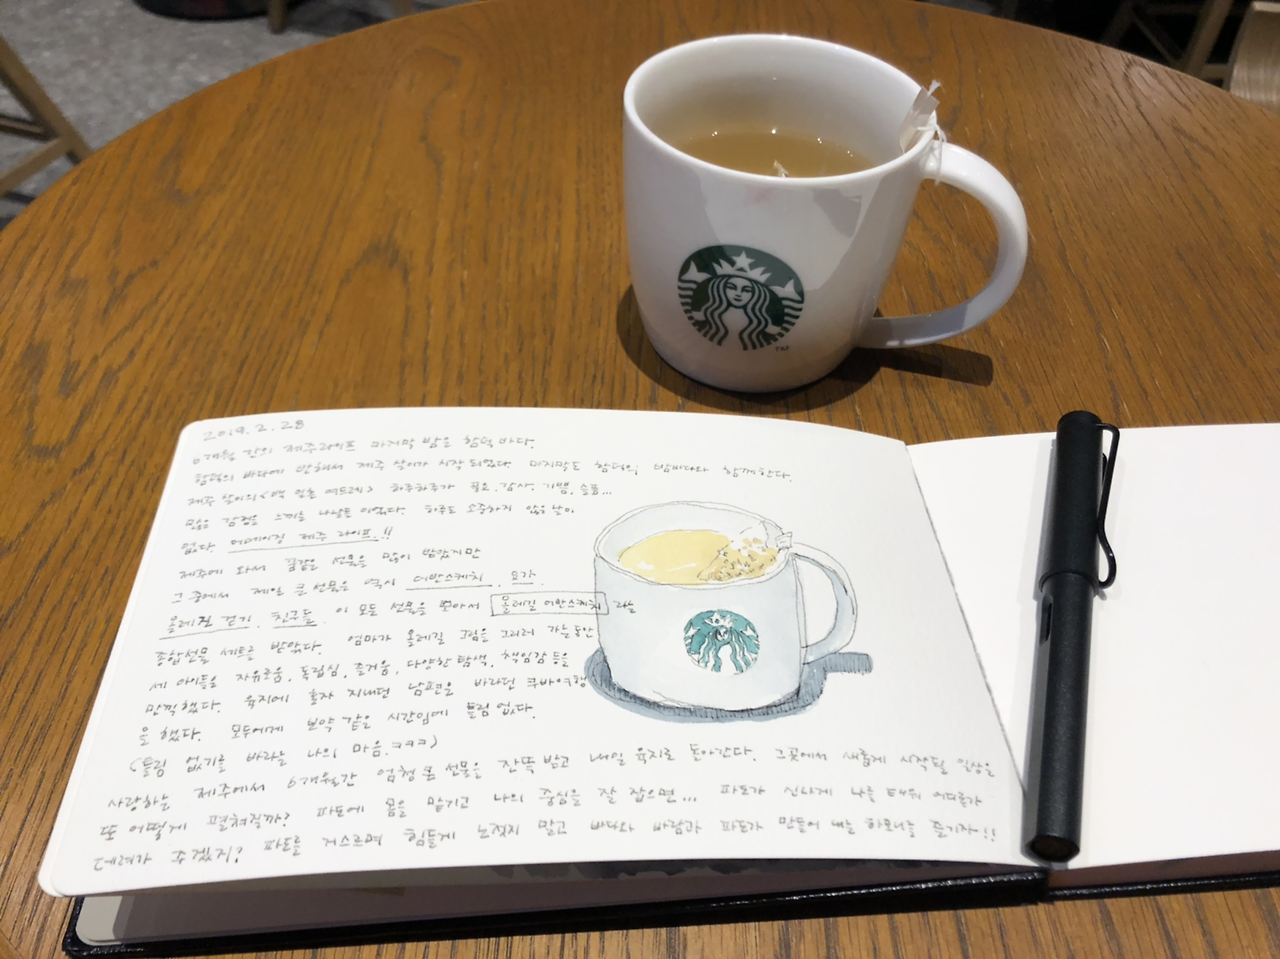 TM
2019. 2. 28
6개월 간의 제주라이프 마지막 밤은 함덕 바다.
함덕의 바다에 반해서 제주 살이가 시작 되었다. 마지막도 함덕의 밤바다와 함께한다.
제주 살이의 <백 일흔 여드레> 하루하루가 감사, 기쁨, 슬픔...
많은 감정을 느끼는 나날들 이었다. 하루도 소중하지 않은 날이
없다. 어메이징 제주 라이프!!
제주에 와서 꿈같은 선물을 많이 받았지만
그 중에서 제일 큰 선물은 역시 어반스케치, 요가,
올레길 걷기, 친구들. 이 모든 선물을 모아서 올레길 어반스케치 라는
종합선물 세트를 받았다. 엄마가 올레길 그림을 그리러 가는동안
세 아이들은 자유로움, 독립심, 즐거움, 다양한 탐색, 책임감 등을
만끽했다. 육지에 혼자 지내던 남편은 바라던 쿠바여행
을 했다. 모두에게 보약 같은 시간임에 틀림 없다.
(틀림 없기를 바라는 나의 마음. ㅋㅋㅋ)
사랑하는 제주에서 6개월간 엄청 큰 선물을 잔뜩 받고 내일 육지로 돌아간다. 그곳에서 새롭게 시작될 일상은
또 어떻게 펼쳐질까? 파도에 몸을 맡기고 나의 중심을 잘 잡으면... 파도가 신나게 나를 태워 어디론가
데려가 주겠지? 파도를 거스르며 힘들게 노젓지 말고 바다와 바람과 파도가 만들어 내는 하모니를 즐기자!!